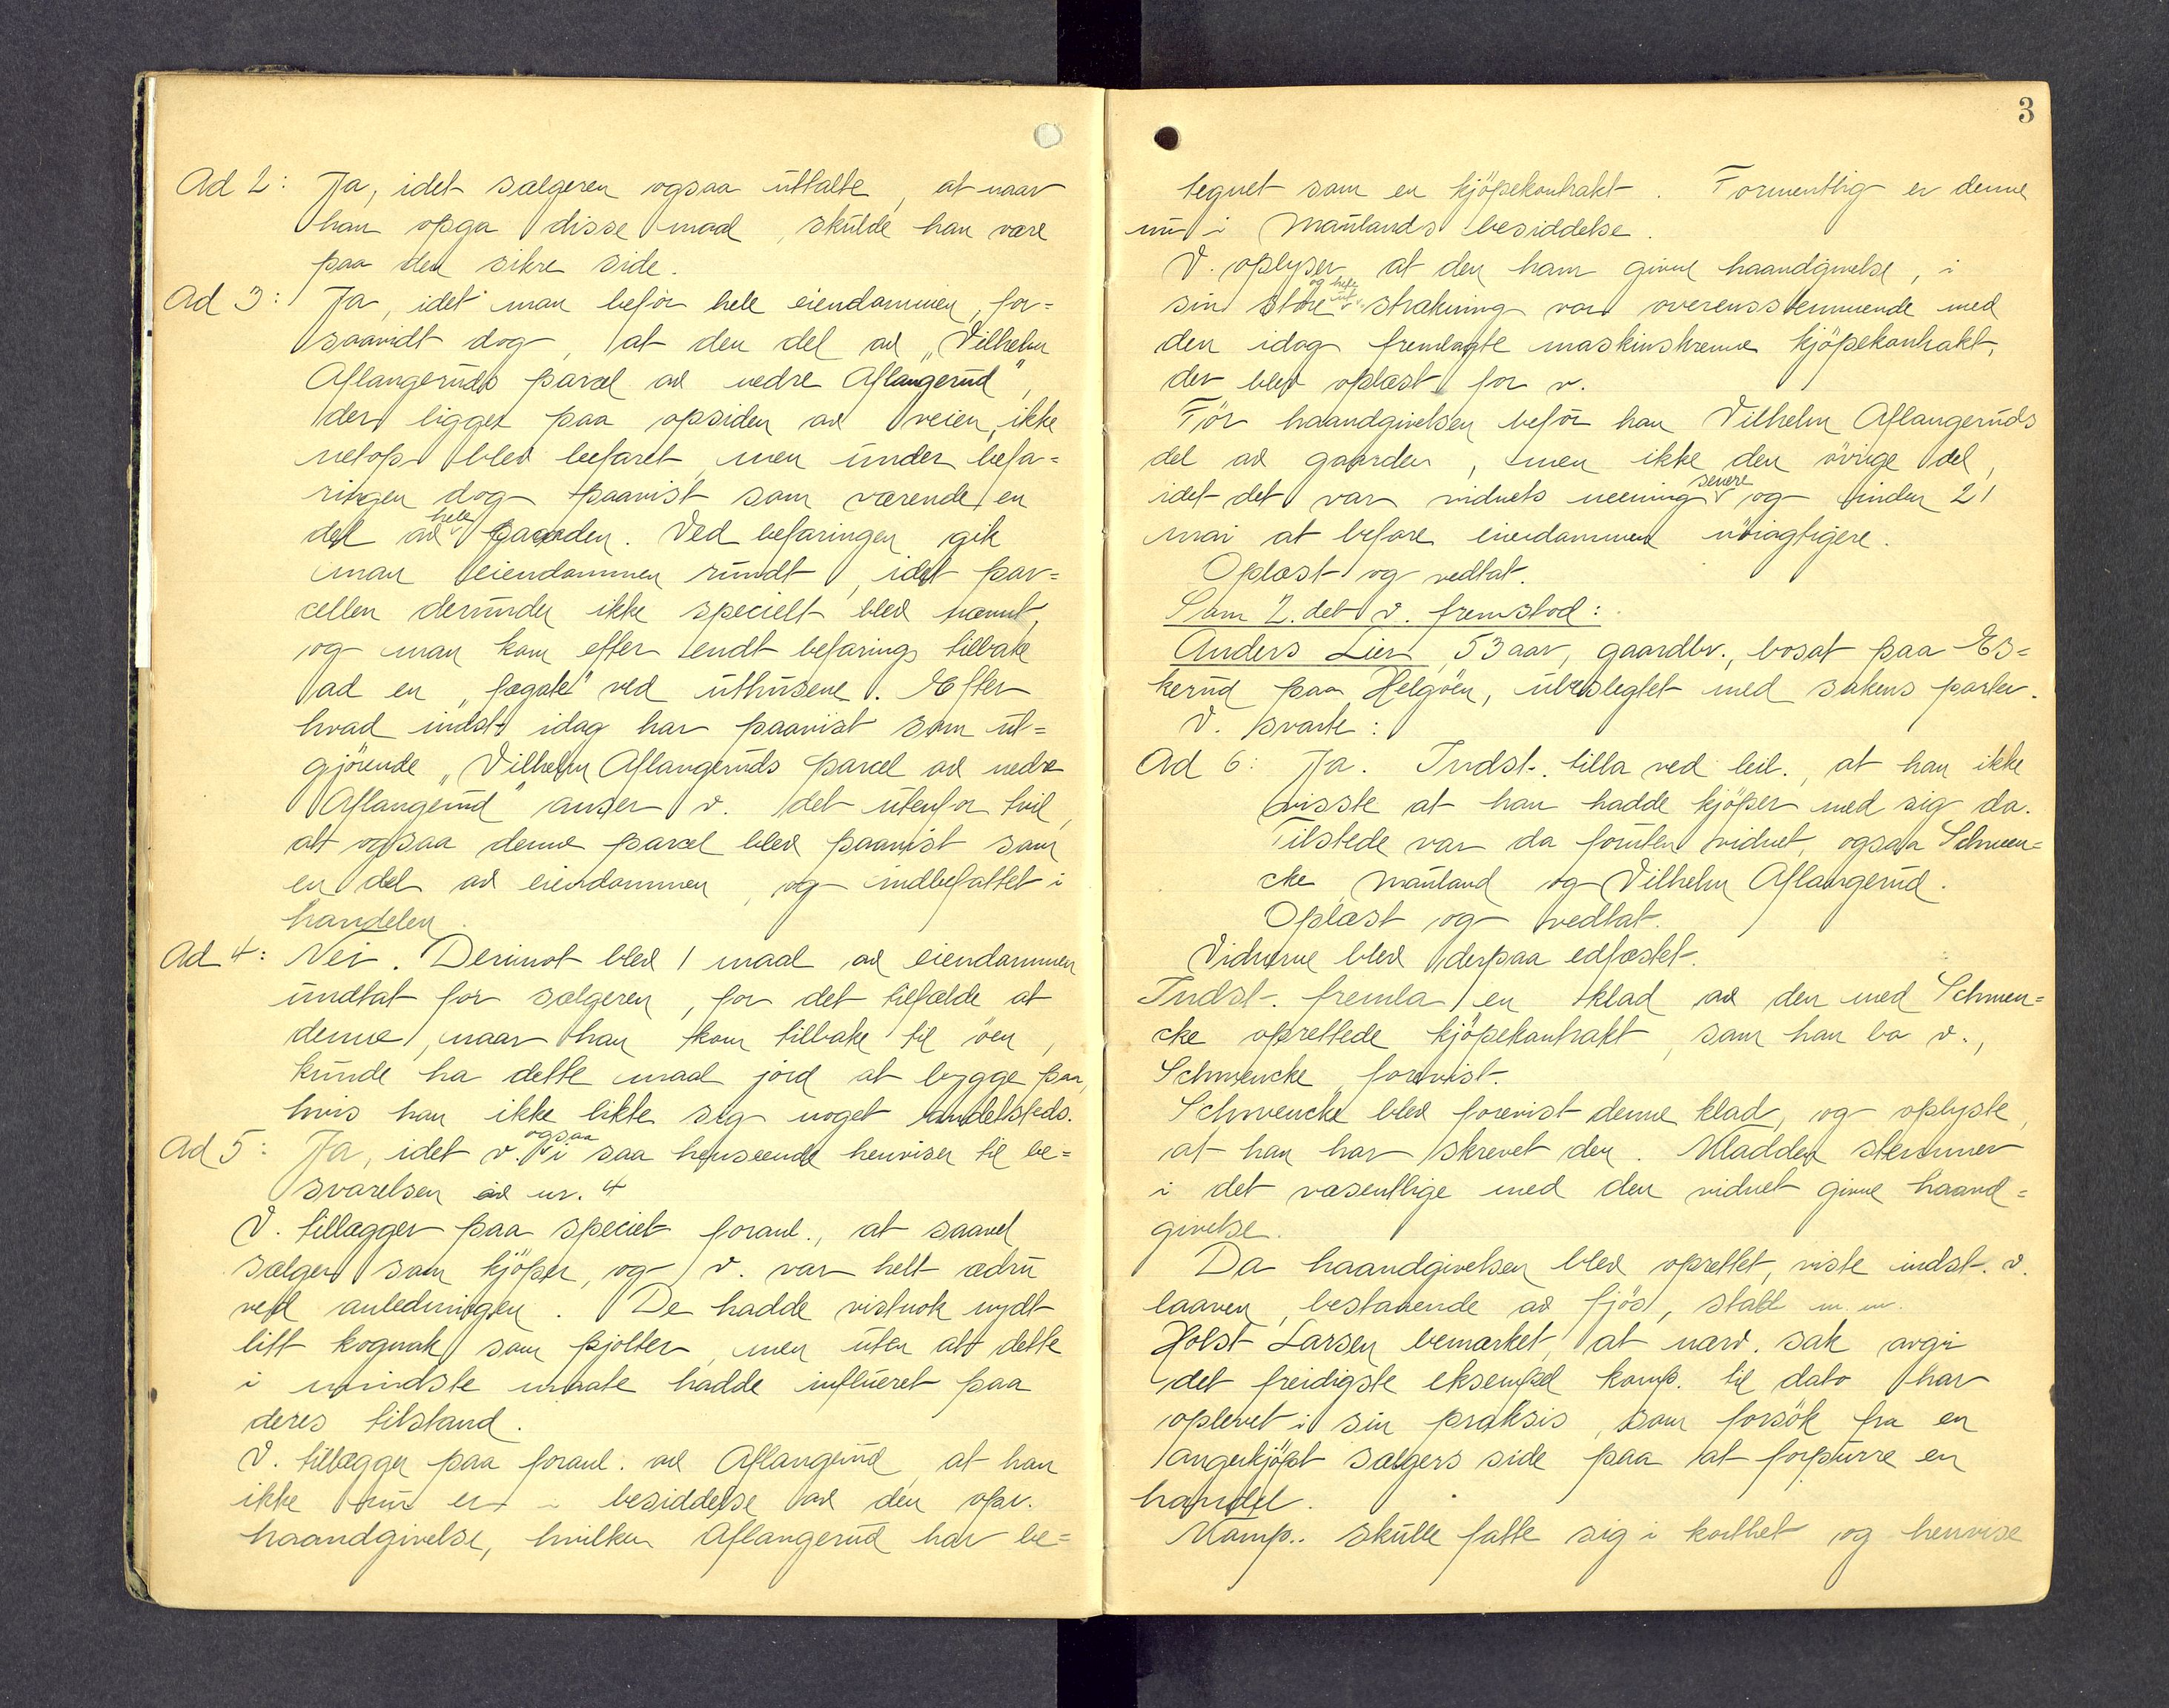 Ad 2: Ja, idet sælgeren ogsaa uttalte, at naar
han opga disse maal, skulde han være
paa den sikre side.
Ad 3: Ja, idet man befór hele eiendommen, for=
saavidt dog, at den del av "Vilhelm
Aflangeruds parcel av nedre Aflangerud",
der ligger paa opsiden av veien, ikke
netop blev befaret, men under befa=
ringen dog paavist som værende en
del av hele gaarden. Ved befaringen gik
man eiendommen rundt, idet par=
cellen derunder ikke specielt blev nævnt,
og man kom efter endt befaring tilbake
ad en "fægate" ved uthusene. Efter
hvad indst. idag har paavist som ut=
gjørende "Vilhelm Aflangeruds parcel av nedre
Aflangerud" anser v. det utenfor tvil,
at ogsaa denne parcel blev paavist som
en del av eiendommen, og indbefattet i
handelen.
Ad 4: Nei. Derimot blev 1 maal av eiendommen
undtat for sælgeren, for det tilfælde at
denne, naar han kom tilbake til øen,
kunde ha dette maal jord at bygge paa,
hvis han ikke likte sig noget andetsteds.
Ad 5: Ja, idet v. ogsaa i saa henseende henviser til be=
svarelsen av nr. 4
V. tillægger paa speciel foranl., at saavel
sælger som kjøper, og v. var helt ædru
ved anledningen. De hadde vistnok nydt
litt kognak som pjolter, men uten at dette
i mindste maate hadde influeret paa
deres tilstand.
V. tillægger paa foranl. av Aflangerud, at han
ikke nu er i besiddelse av den opr.
haandgivelse, hvilken Aflangerud har be=
3
tegnet som en kjøpekontrakt. Formentlig er denne
nu i Maulands besiddelse.
V. oplyser, at den ham givne haandgivelse, i
sin store og hele utstrækning var overensstemmende med
den idag fremlagte maskinskrevne kjøpekontrakt,
der blev oplæst for v.
Før haandgivelsen befór han Vilhelm Aflangeruds
del av gaarden, men ikke den øvrige del,
idet det var vidnets mening senere og inden 21
mai at befare eiendommen nøiagtigere.
Oplæst og vedtat.
Som 2. det v. fremstod:
Anders Lier, 53 aar, gaardbr., bosat paa Es=
kerud paa Helgøen, ubeslegtet med sakens parter.
V. svarte:
Ad 6: Ja. Indst. tilla ved leil., at han ikke
visste at han hadde kjøper med sig da.
Tilstede var da foruten vidnet, ogsaa Schwen=
cke, Mauland og Vilhelm Aflangerud.
Oplæst og vedtat.
Vidnerne blev derpaa edfæstet.
Indst. fremla en klad av den med Schwen=
cke oprettede kjøpekontrakt, som han ba v.,
Schwencke, forevist.
Schwencke blev forevist denne klad, og oplyste,
at han har skrevet den. Kladden stemmer
i det væsentlige med den vidnet givne haand=
givelse.
Da haandgivelsen blev oprettet, viste indst. v.
laaven, bestaaende av fjøs, stald m.m.
Holst Larsen bemærket, at nærv. sak avgir
det freidigste eksempel komp. til dato har
oplevet i sin praksis, som forsøk fra en
angerkjøpt sælgers side paa at forpurre en
handel.
Komp. skulle fatte sig i korthet og henvise